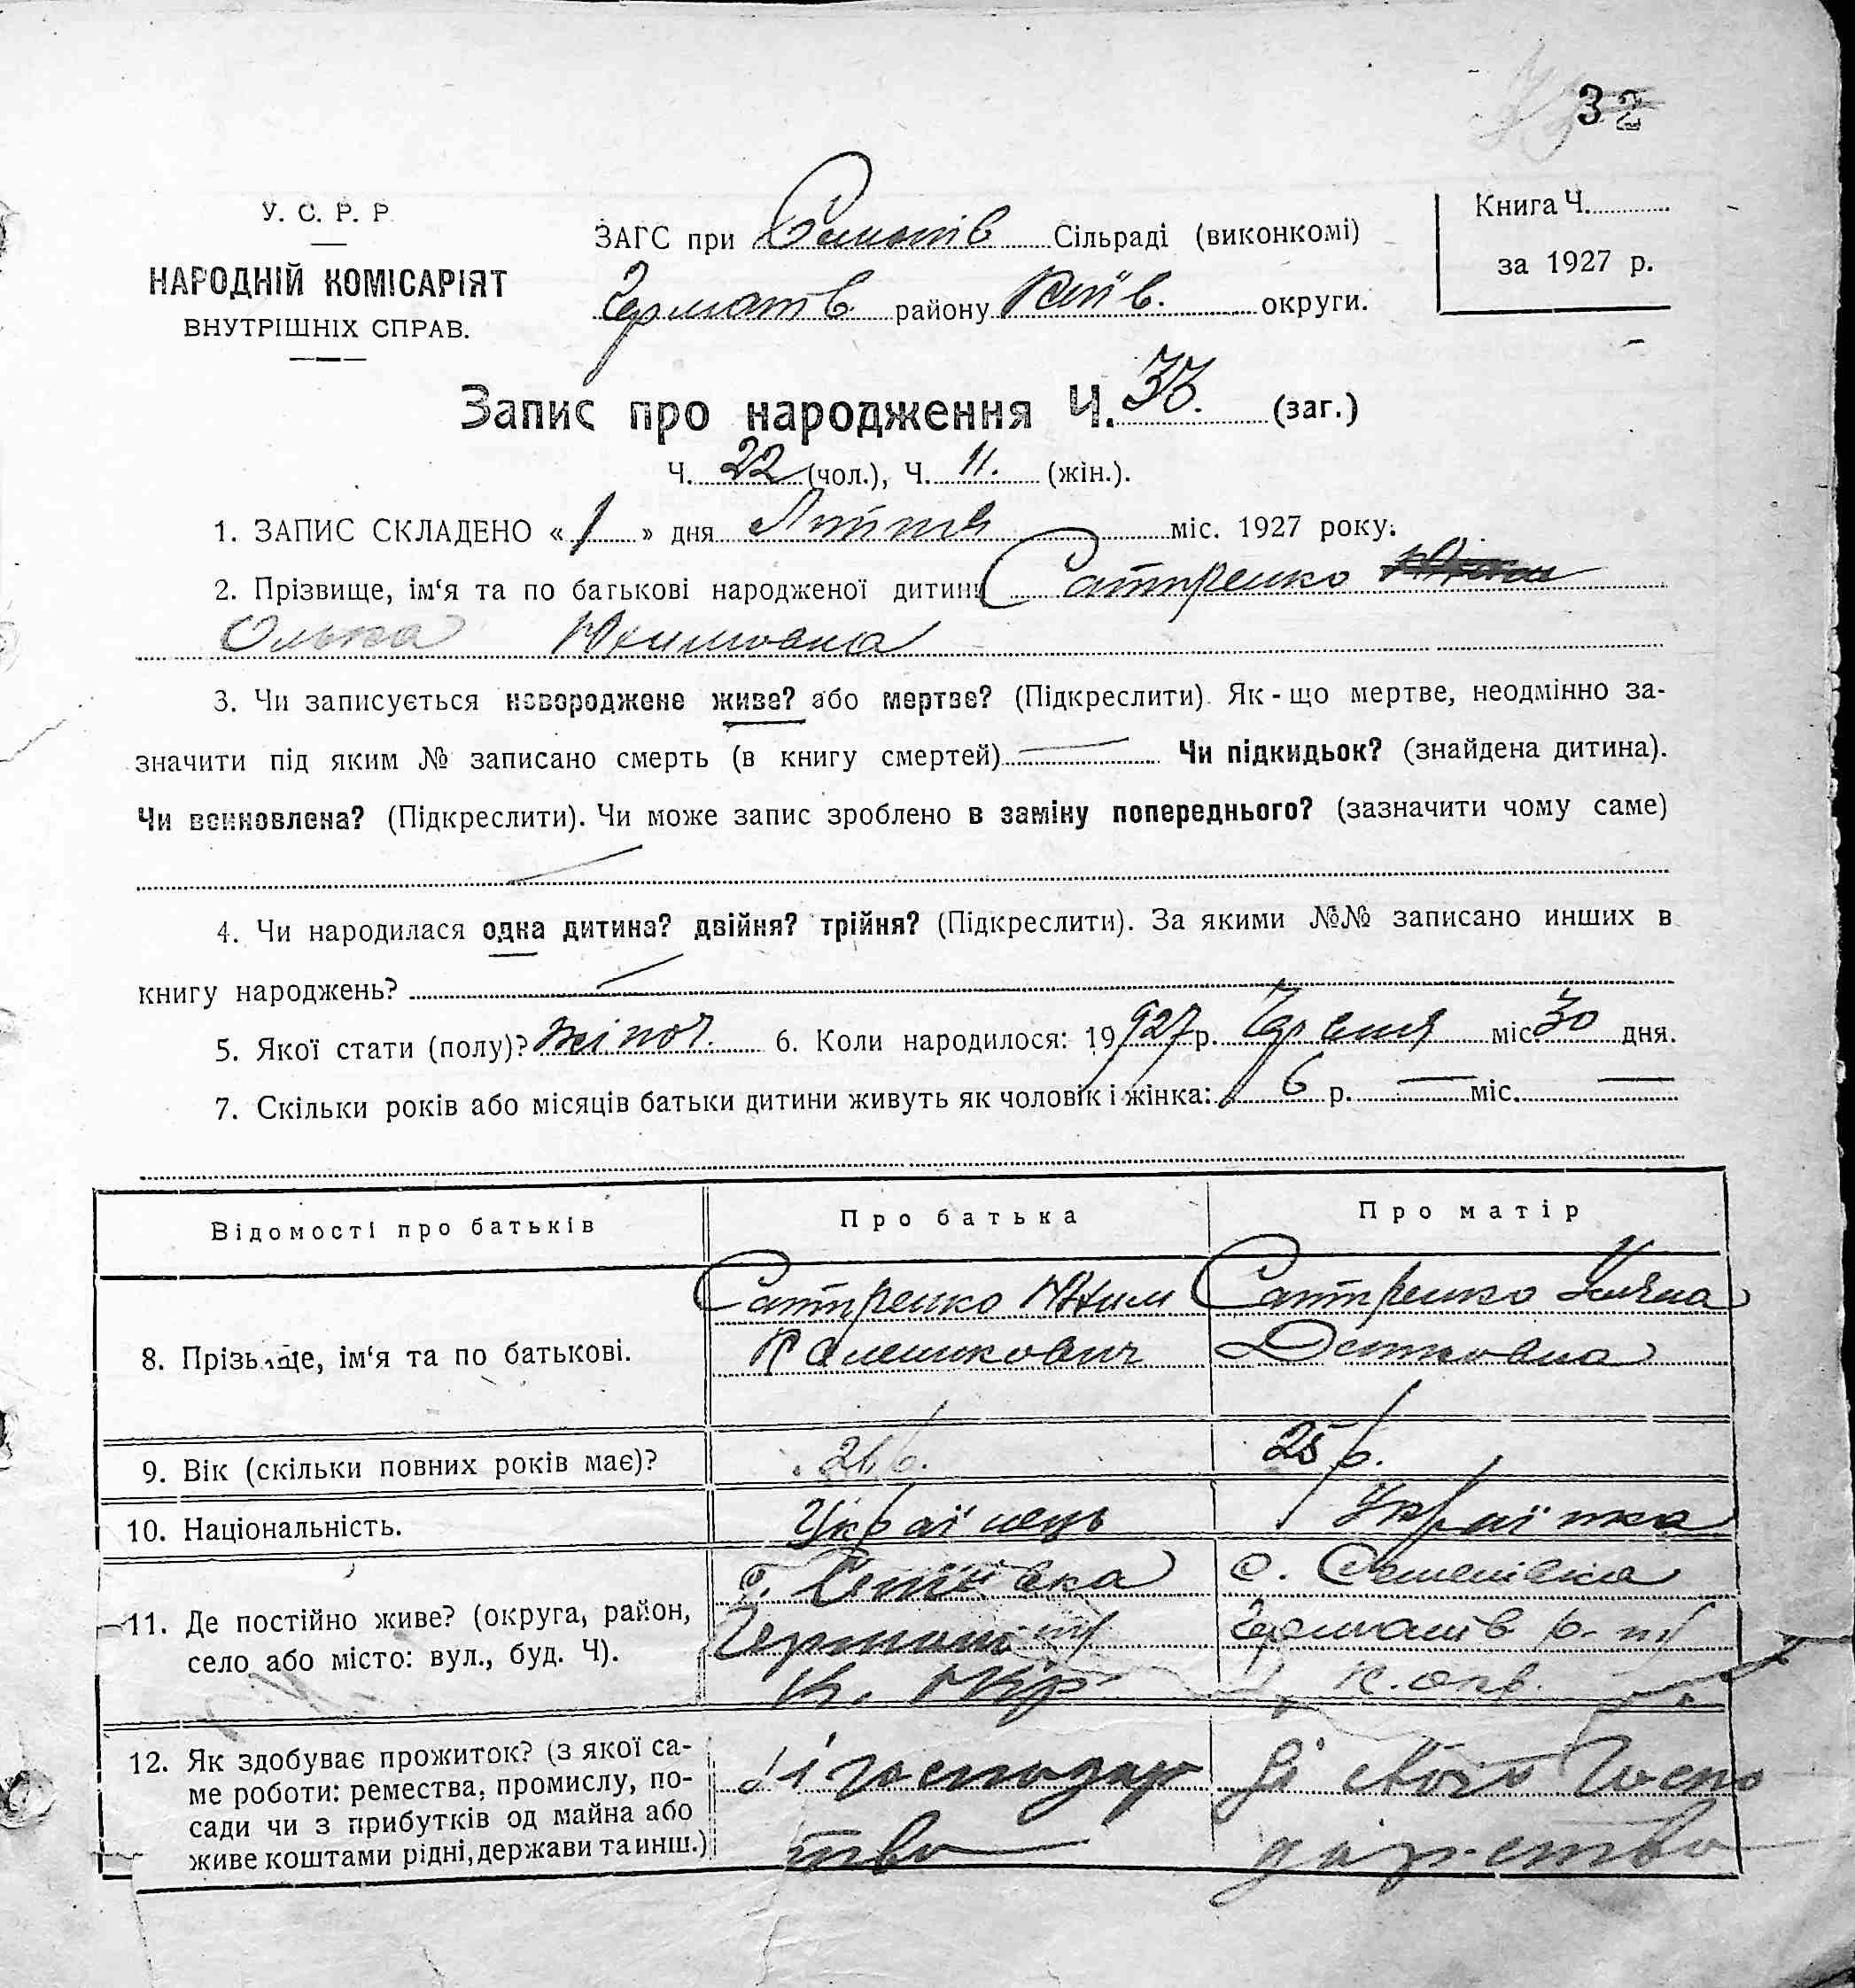 32
У. С. Р. Р.
НАРОДНІЙ КОМІСАРІЯТ
ВНУТРІШНІХ СПРАВ.
ЗАГС при Сільраді (виконкомі)
району Київ. округи.
Книга Ч.
за 1927 р.
Запис про народження Ч. 33. (заг.)
Ч. 22 (чол.), Ч. 11. (жін.).
1. ЗАПИС СКЛАДЕНО « 1 » дня Липня міс. 1927 року.
2. Прізвище, ім‘я та по батькові народженої дитини
Юхимовна
3. Чи записується новороджене живе? або мертве? (Підкреслити). Як-що мертве, неодмінно за-
значити під яким № записано смерть (в книгу смертей) Чи підкидьок? (знайдена дитина).
Чи всиновлена? (Підкреслити). Чи може запис зроблено в заміну попереднього? (зазначити чому саме)
4. Чи народилася одна дитина? двійня? трійня? (Підкреслити). За якими №№ записано инших в
книгу народжень?
5. Якої стати (полу)? жіноч. 6. Коли народилося: 1927 р. Червня міс. 30 дня.
7. Скільки років або місяців батьки дитини живуть як чоловік і жінка: 6 р. — міс. —
Відомості про батьків Про батька Про матір
8. Прізвище, ім‘я та по батькові. Юхим Уляна
9. Вік (скільки повних років має)? 26 р. 25 р.
10. Національність. Українець Українка
11. Де постійно живе? (округа, район, с. Семенівка
село або місто: вул., буд. Ч). К. Окр. К. окр.
12. Як здобуває прожиток? (з якої са- господар Зі свого Госпо
ме роботи: ремества, промислу, по- ство дарства
сади чи з прибутків од майна або
живе коштами рідні, держави та инш.)